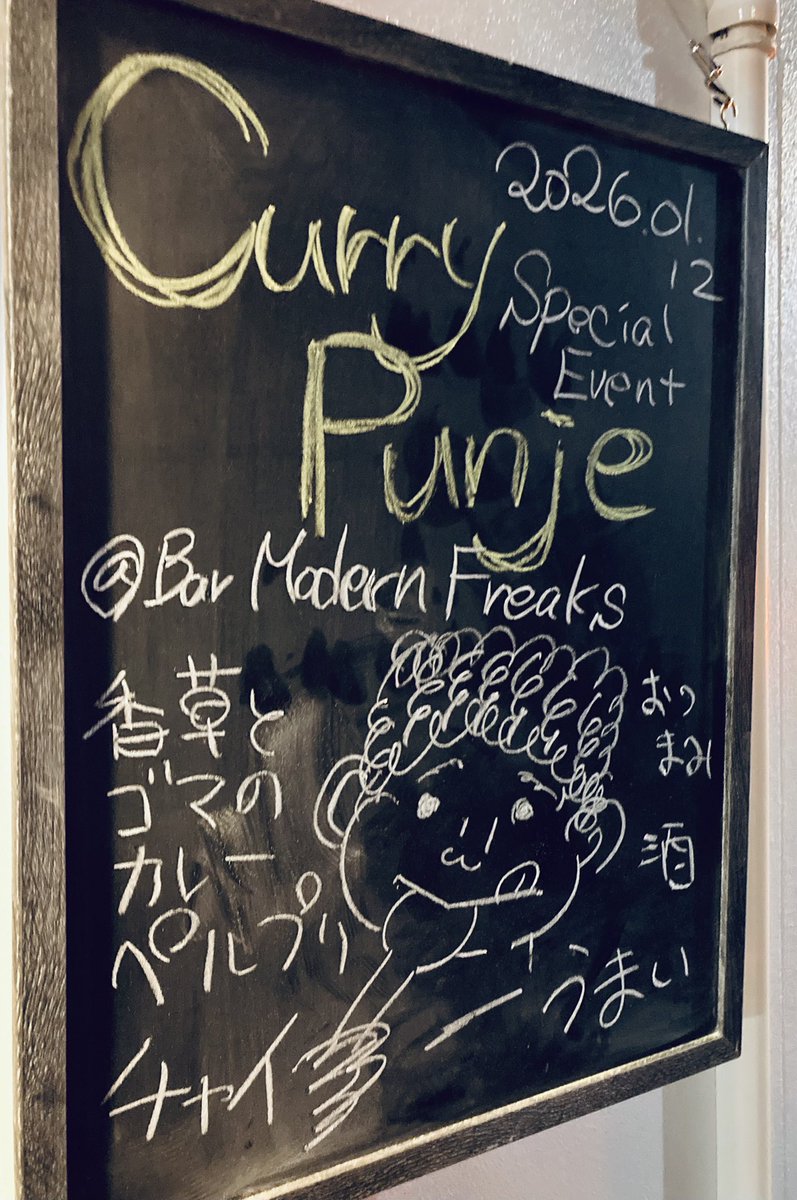 Curry
Punje
2026.01.
12
Special
Event
@Bar Modern Freaks
香草と
ゴマの
カレー
ペルプリ
チャイ
おつ
まみ
酒
うまい